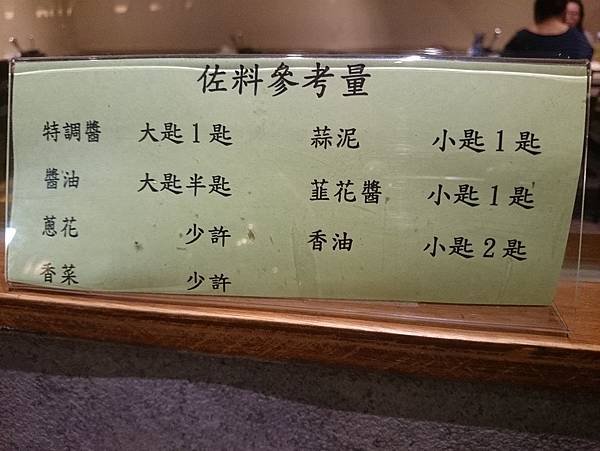 佐料參考量
特調醬 大匙1匙 蒜泥 小匙1匙
醬油 大匙半匙 韮花醬 小匙1匙
蔥花 少許 香油 小匙2匙
香菜 少許